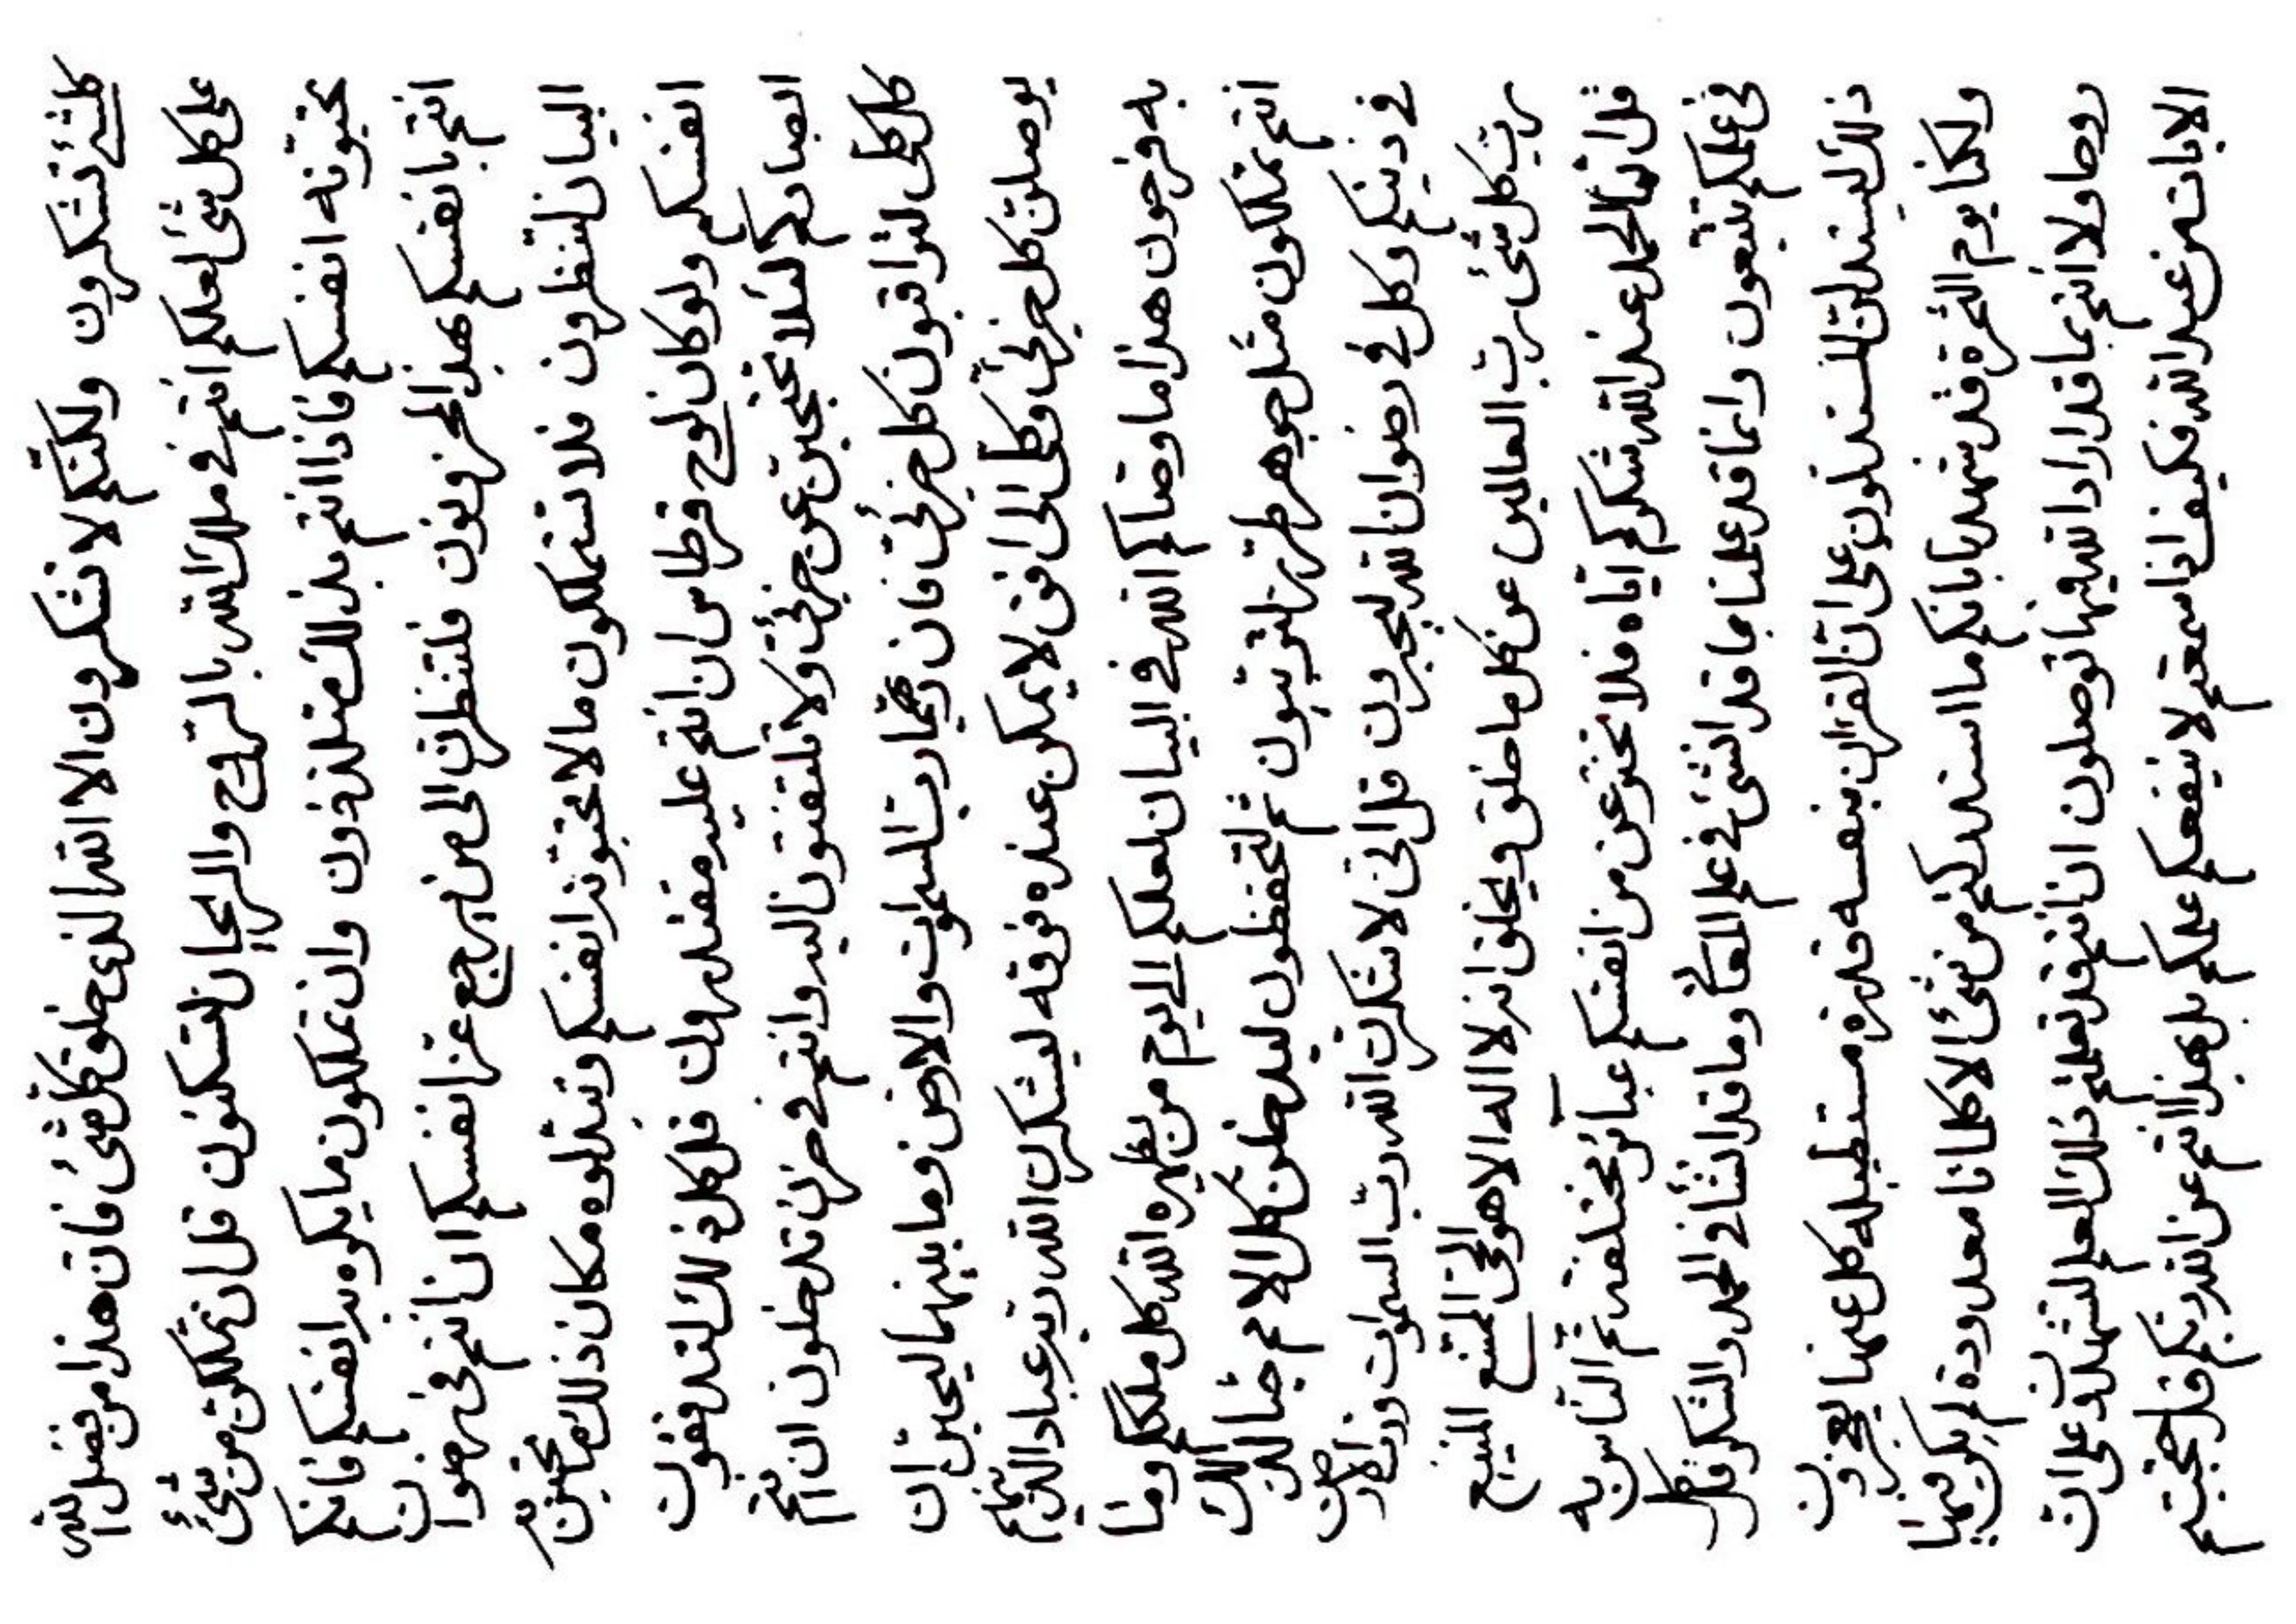 كلشئ تشكرون ولكنكم لا تشكرون الا الله الذى خلق كلشئ فان هذا من فضل الله
على كل شئ لعلكم انتم فى ملك الله بالروح والريحان لتسكنون قل ان تملكن من شئ
تحبونه انفسكم فاذا انتم بذلك متلذذون وان تملكون ما يكرهنه انفسكم فانكم
انتم بانفسكم بهذا لمحزونون فلتنظرن الى من يرجع عز انفسكم ان انتم فى رضوان
البيان لتنظرون فلا تستملكون ما لا تحبونه انفسكم وتبدلوه مكان ذلك ما تحبن
انفسكم ولو كان لوح قرطاس ان انتم عليه مقتدرون قل كل ذلك لتدققون
ابصاركم لئلا تحتجبن عن جزئى ولا تلتفتون اليه وانتم فى حزن تدخلون ان انتم
كل كلى لتراقبون كل جزئى فان ربكم رب السموات والارض وما بينهما ليحبن ان
يوصلن كل جزئى وكلى الى افق لا يمكن عنده فوقه ليشكرن الله ربه عباد الذينهم
به فرحون هذا ما وصاكم الله فى البيان لعلكم اليوم من يظهره الله كل ملككم وما
انتم تملكون مثل جوهر طرز لترتبون ثم لتحفظون ليدخلن كل الامم جنا لك
فى دينكم وكل فى رضوان الله ليحبرون قل انى لاشكرن الله رب السموات ورب الارض
رب كل شئ رب العالمين عن كل ما خلق ويخلق انه لا اله الا هو الحى الممتنع المنيع
قل انما الحمد عند الله شكركم اياه فلا تخترعن من انفسكم عبائر مختلفة ثم الناس به
فى علمكم تتبعون وانما قد علمنا ما قد انشئ فى علم المعانى وما قد انشأ فى الحمد والشكر قل كل
ذلك ليستدلن المستدلون على ان القران بنفسه قدرة مستطيلة كل عنها ليعجزون
ولكنا يوم الثمرة قد شهدنا بانكم ما استدركتم من شئ الا كلمات معدودة لم يكن فيها
روحا ولا انتم بما قد اراد الله فيها توصلون ان انتم قد تعلمتم ذلك العلم لتشهدون على ان
الايات من عند الله فكيف اذا سمعتم لا ينفعكم علمكم بل بهذا انتم عن الله ربكم قد احتجبتم